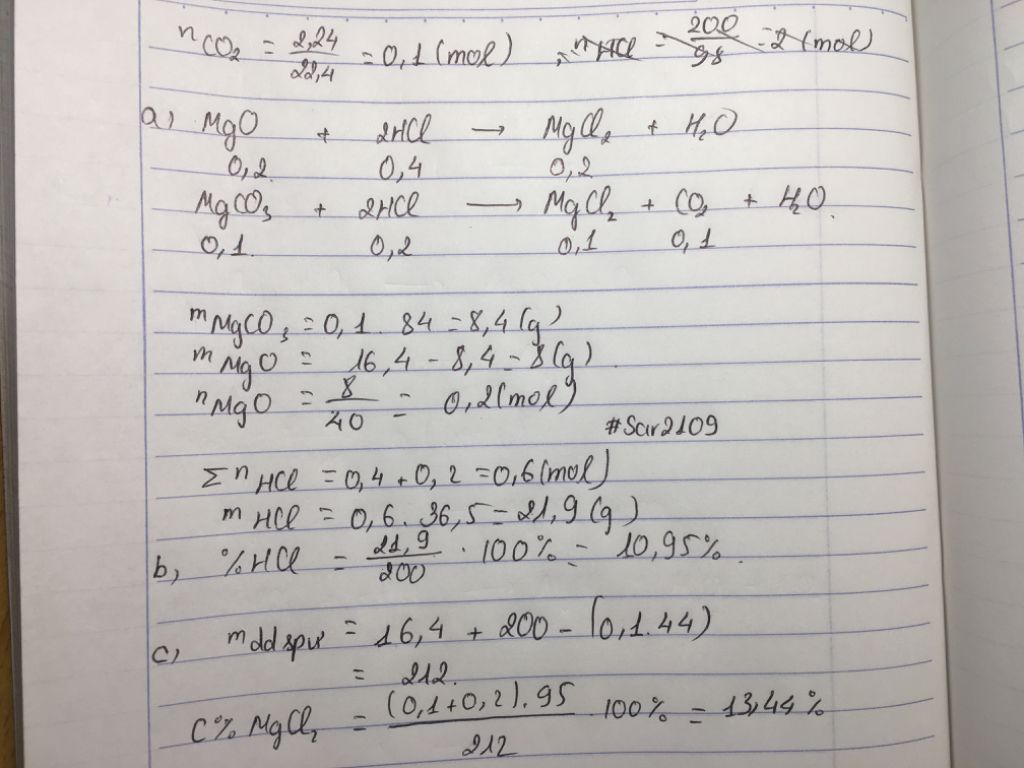 nCO₂ = 2,24/22,4 = 0,1 (mol) , nHCl = 200/98 = 2 (mol)
a) MgO + 2HCl → MgCl₂ + H₂O
0,2 0,4 0,2
MgCO₃ + 2HCl → MgCl₂ + CO₂ + H₂O.
0,1 0,2 0,1 0,1
mMgCO₃ = 0,1 . 84 = 8,4 (g)
mMgO = 16,4 - 8,4 = 8 (g).
nMgO = 8/40 = 0,2 (mol)
#Sar2109
Σ nHCl = 0,4 + 0,2 = 0,6 (mol)
mHCl = 0,6 . 36,5 = 21,9 (g)
b, %HCl = 21,9/200 . 100% = 10,95%.
c, mddspư = 16,4 + 200 - (0,1 . 44)
= 212.
C% MgCl₂ = (0,1 + 0,2) . 95/212 . 100% = 13,44%